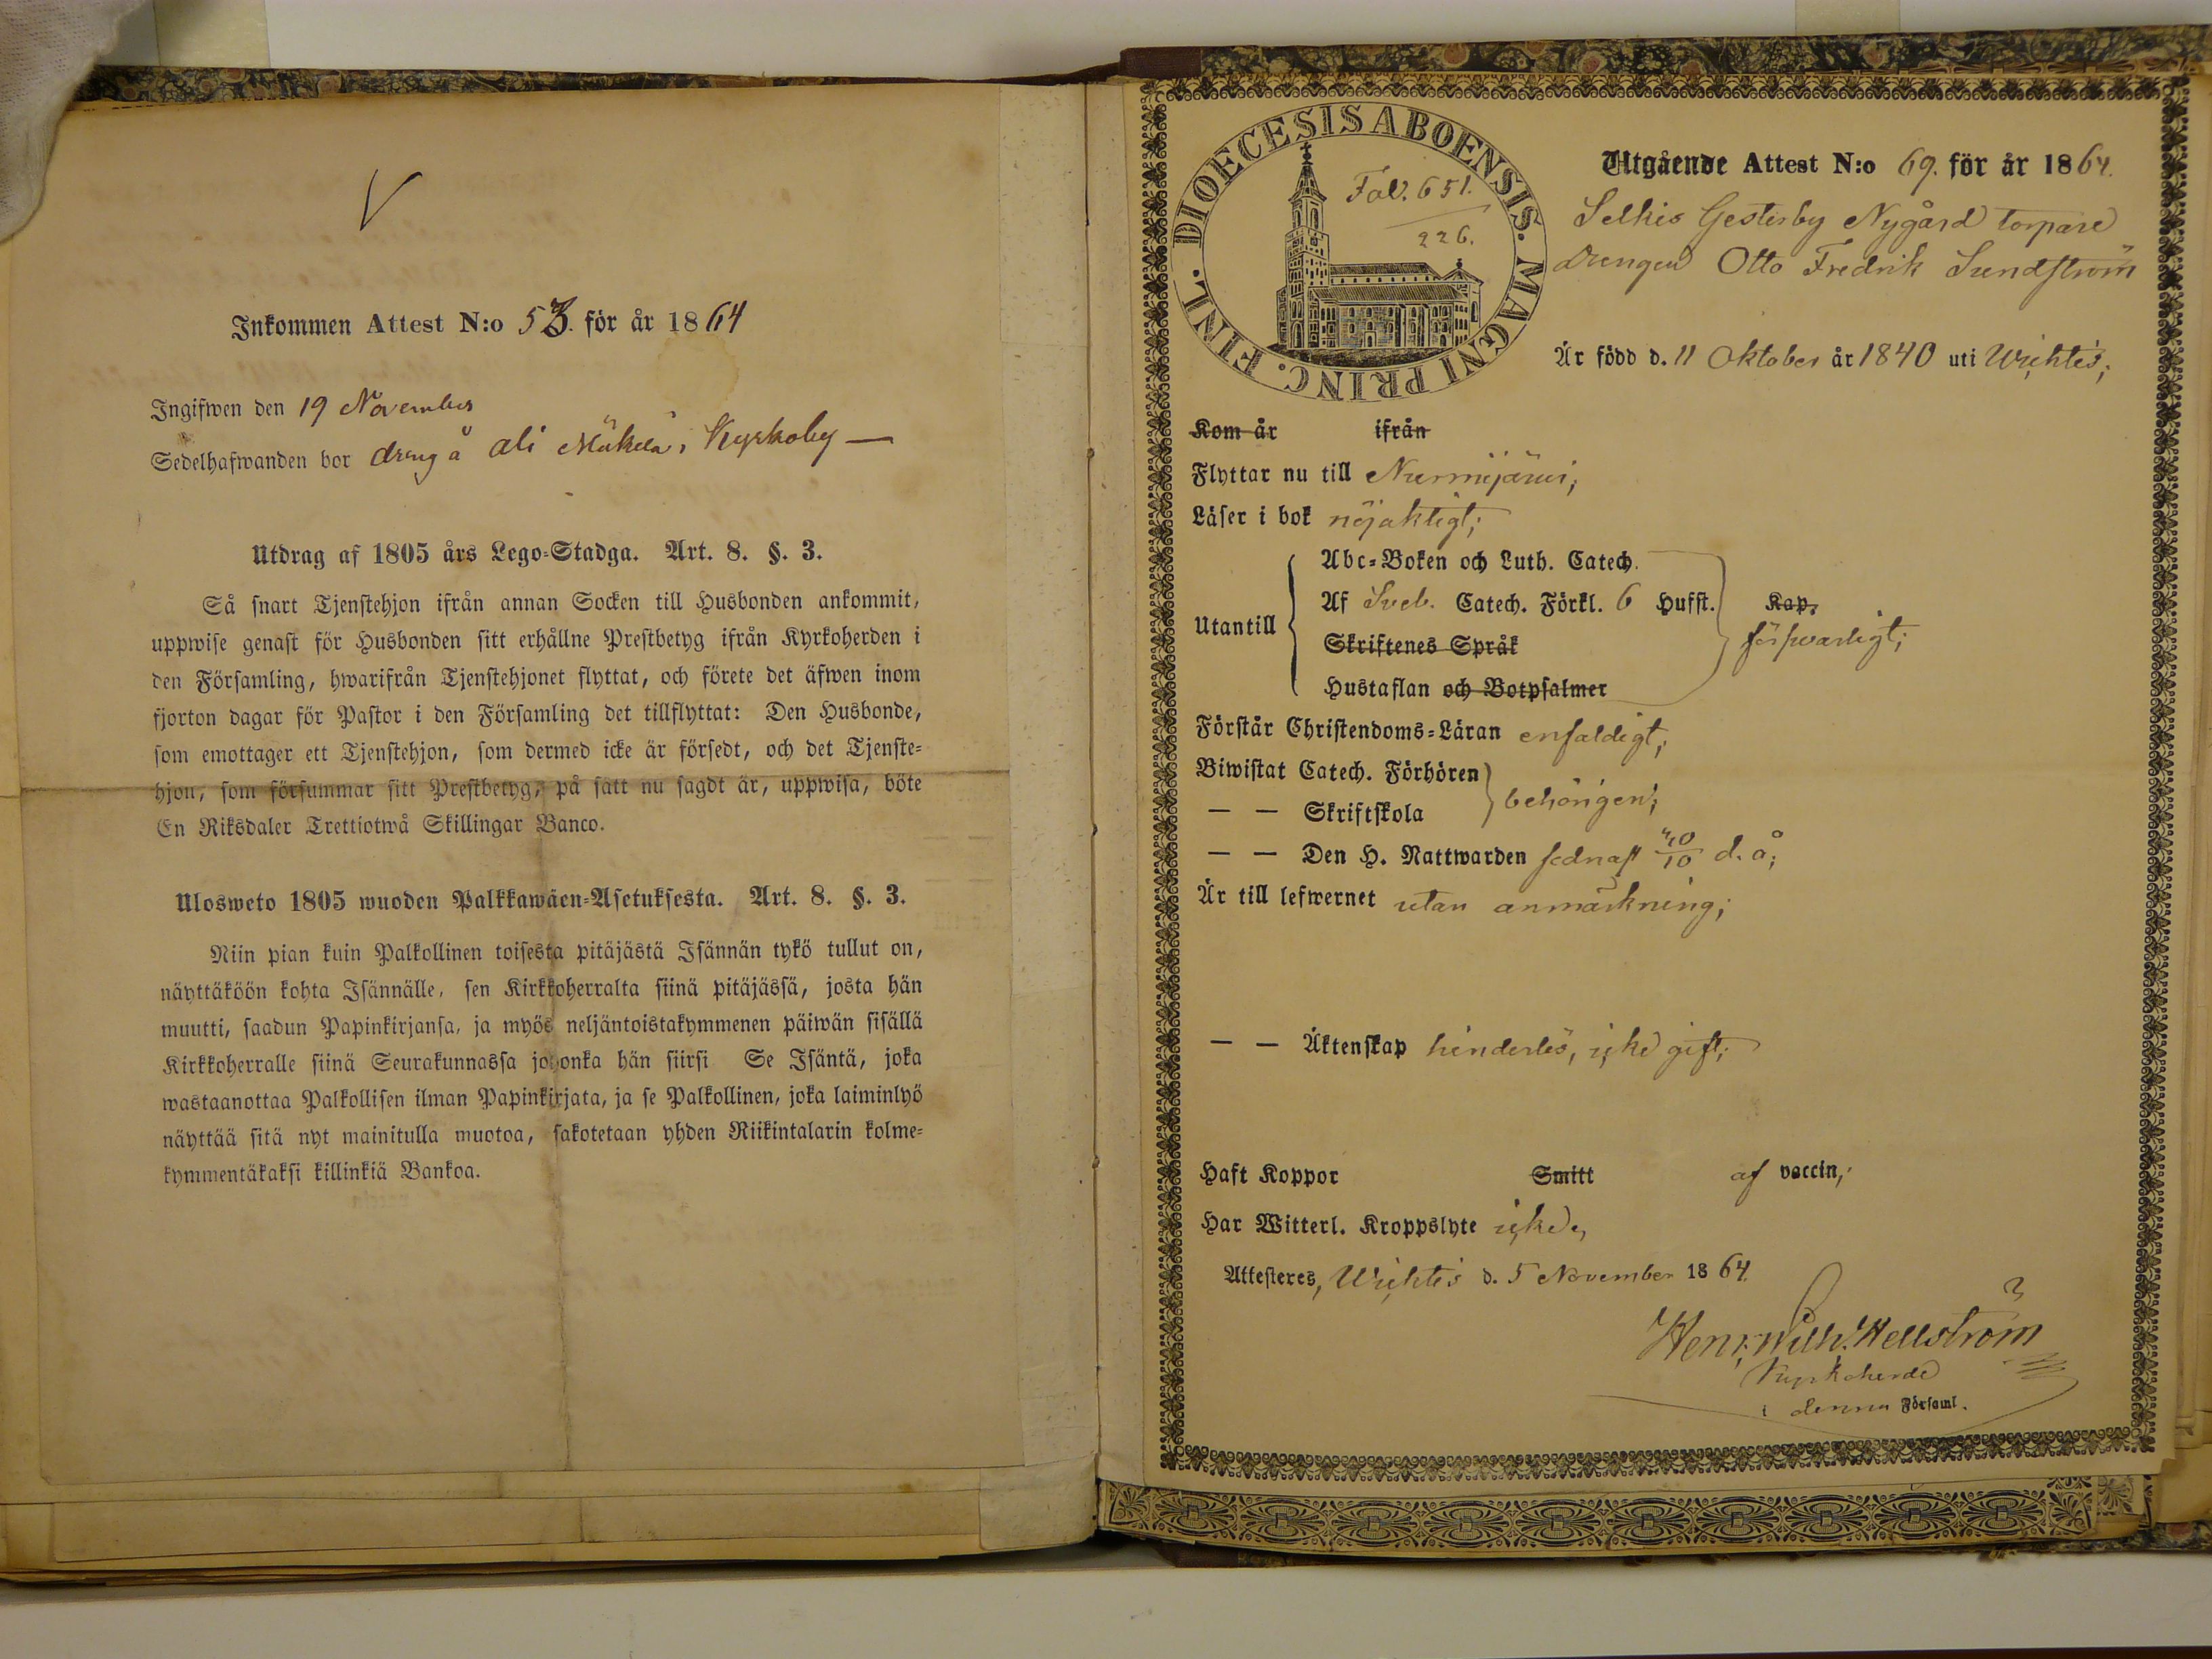 Inkommen Attest N:o 53. för år 1864
Ingifwen den 19 November
Sedelhafwanden bor dräng å Ali Mäkelä, Kyrkoby —
Utdrag af 1805 års Lego-Stadga. Art. 8. §. 3.
Så snart Tjenstehjon ifrån annan Socken till Husbonden ankommit,
uppwise genast för Husbonden sitt erhållne Prestbetyg ifrån Kyrkoherden i
den Församling, hwarifrån Tjenstehjonet flyttat, och förete det äfwen inom
fjorton dagar för Pastor i den Församling det tillflyttat: Den Husbonde,
som emottager ett Tjenstehjon, som dermed icke är försedt, och det Tjenste-
hjon, som försummar sitt Prestbetyg, på sätt nu sagdt är, uppwisa, böte
En Riksdaler Trettiotwå Skillingar Banco.
Ulosweto 1805 wuoden Palkkawäen-Asetuksesta. Art. 8. §. 3.
Niin pian kuin Palkollinen toisesta pitäjästä Isännän tykö tullut on,
näyttäköön kohta Isännälle, sen Kirkkoherralta siinä pitäjässä, josta hän
muutti, saadun Papinkirjansa, ja myös neljäntoistakymmenen päiwän sisällä
Kirkkoherralle siinä Seurakunnassa johonka hän siirsi Se Isäntä, joka
wastaanottaa Palkollisen ilman Papinkirjata, ja se Palkollinen, joka laiminlyö
näyttää sitä nyt mainitulla muotoa, sakotetaan yhden Riikintalarin kolme-
kymmentäkaksi killinkiä Bankoa.
DIOECESIS ABOENSIS. MAGNI PRINC. FINL.
Fol. 651.
226.
Utgående Attest N:o 69. för år 1864.
Selkis Gesterby Nygård torpare
Drengen Otto Fredrik Sundström
Är född d. 11 Oktober år 1840 uti Wichtis;
Kom år ifrån
Flyttar nu till Nurmijärvi;
Läser i bok nöjaktigt;
Utantill
Abc-Boken och Luth. Catech.
Af Sveb. Catech. Förkl. 6 Hufst. Kap.
Skriftenes Språk
försvarligt;
Hustaflan och Botpsalmer
Förstår Christendoms-Läran enfaldigt;
Biwistat Catech. Förhören
— — Skriftskola
behörigen;
— — Den H. Nattwarden sednast /10 d. å;
Är till lefwernet utan anmärkning;
— — Äktenskap hinderlös, icke gift;
Haft Koppor Smitt af vaccin;
Har Witterl. Kroppslyte icke,
Attesteres, Wichtis d. 5 November 1864.
Henr. Wilh. Hellström
Kyrkoherde
i denna Församl.